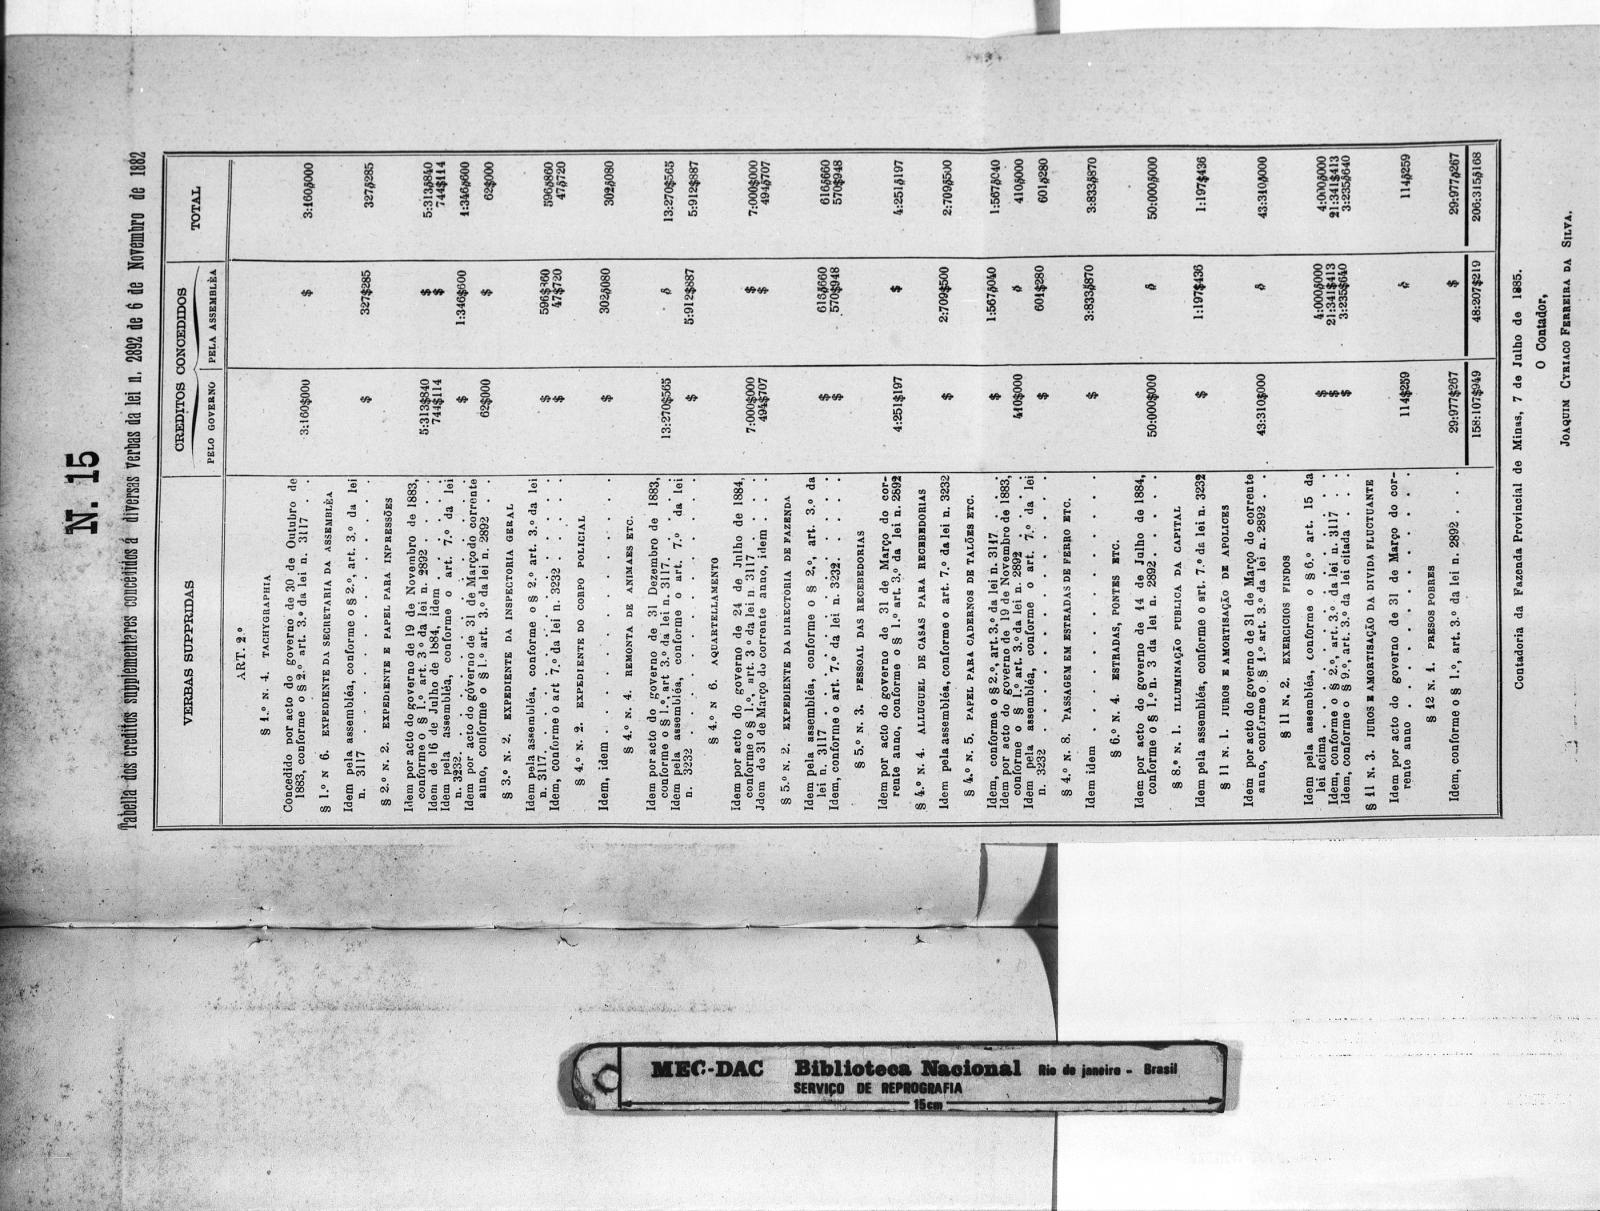 N. 15
Tabella dos creditos supplementares concedidos á diversas verbas da lei n. 2892 de 6 de Novembro de 1882
VERBAS SUPPRIDAS CREDITOS CONCEDIDOS TOTAL
PELO GOVERNO PELA ASSEMBLÉA
ART. 2.º
§ 1.º N. 4. TACHYGRAPHIA
Concedido por acto do governo de 30 de Outubro de
1883, conforme o § 2.º art. 3.º da lei n. 3117 . . 3:160$000 $ 3:160$000
§ 1.º N 6. EXPEDIENTE DA SECRETARIA DA ASSEMBLÉA
Idem pela assembléa, conforme o § 2.º, art. 3.º da lei
n. 3117 . . . . . . . . . . $ 327$285 327$285
§ 2.º N. 2. EXPEDIENTE E PAPEL PARA IMPRESSÕES
Idem por acto do governo de 19 de Novembro de 1883,
conforme o § 1.º art. 3.º da lei n. 2892 . . . 5:313$840 $ 5:313$840
Idem de 16 de Julho de 1884, idem . . . . 744$114 $ 744$114
Idem pela assembléa, conforme o art. 7.º da lei
n. 3232. . . . . . . . . . $ 1:346$600 1:346$600
Idem por acto do governo de 31 de Março do corrente
anno, conforme o § 1.º art. 3.º da lei n. 2892 . . 62$000 $ 62$000
§ 3.º N. 2. EXPEDIENTE DA INSPECTORIA GERAL
Idem pela assembléa, conforme o § 2.º art. 3.º da lei
n. 3117. . . . . . . . . . $ 596$860 596$860
Idem, conforme o art 7.º da lei n. 3232 . . . . $ 47$720 47$720
§ 4.º N. 2. EXPEDIENTE DO CORPO POLICIAL
Idem, idem . . . . . . . . . $ 302$080 302$080
§ 4.º N. 4. REMONTA DE ANIMAES ETC.
Idem por acto do governo de 31 Dezembro de 1883,
conforme o § 1.º, art 3.º da lei n. 3117. . . . 13:270$565 $ 13:270$565
Idem pela assembléa, conforme o art. 7.º da lei
n. 3232 . . . . . . . . . . $ 5:912$887 5:912$887
§ 4.º N 6. AQUARTELLAMENTO
Idem por acto do governo de 24 de Julho de 1884,
conforme o § 1.º, art. 3 º da lei n. 3117 . . . 7:000$000 $ 7:000$000
Idem de 31 de Março do corrente anno, idem . . . 494$707 $ 494$707
§ 5.º N. 2. EXPEDIENTE DA DIRECTORIA DE FAZENDA
Idem pela assembléa, conforme o § 2.º, art. 3.º da
lei n. 3117 . . . . . . . . . $ 616$660 616$660
Idem, conforme o art. 7.º da lei n. 3232. . . . $ 570$948 570$948
§ 5.º N. 3. PESSOAL DAS RECEBEDORIAS
Idem por acto do governo de 31 de Março do cor-
rente anno, conforme o § 1.º art. 3.º da lei n. 2892 4:251$197 $ 4:251$197
§ 4.º N. 4. ALLUGUEL DE CASAS PARA RECEBEDORIAS
Idem pela assembléa, conforme o art. 7.º da lei n. 3232 $ 2:709$500 2:709$500
§ 4.º N. 5. PAPEL PARA CADERNOS DE TALÕES ETC.
Idem, conforme o § 2.º, art. 3.º da lei n. 3117 . . $ 1:567$040 1:567$040
Idem por acto do governo de 19 de Novembro de 1883,
conforme o § 1.º art. 3.º da lei n. 2892 . . . 410$000 $ 410$000
Idem pela assembléa, conforme o art. 7.º da lei
n. 3232 . . . . . . . . . . $ 601$280 601$280
§ 4.º N. 8. PASSAGEM EM ESTRADAS DE FERRO ETC.
Idem idem . . . . . . . . . $ 3:833$870 3:833$870
§ 6.º N. 4. ESTRADAS, PONTES ETC.
Idem por acto do governo de 14 de Julho de 1884,
conforme o § 1.º n. 3 da lei n. 2892 . . . . 50:000$000 $ 50:000$000
§ 8.º N. 1. ILLUMINAÇÃO PUBLICA DA CAPITAL
Idem pela assembléa, conforme o art. 7.º da lei n. 3232 $ 1:197$436 1:197$436
§ 11 N. 1. JUROS E AMORTISAÇÃO DE APOLICES
Idem por acto do governo de 31 de Março do corrente
anno, conforme o § 1.º art. 3.º da lei n. 2892 . . 43:310$000 $ 43:310$000
§ 11 N. 2. EXERCICIOS FINDOS
Idem pela assembléa, conforme o § 6.º art. 15 da
lei acima . . . . . . . . . $ 4:000$000 4:000$000
Idem, conforme o § 2.º, art. 3.º da lei n. 3117 . . $ 21:341$413 21:341$413
Idem, conforme o § 9.º, art. 3.º da lei citada . . . $ 3:235$640 3:235$640
§ 11 N. 3. JUROS E AMORTISAÇÃO DA DIVIDA FLUCTUANTE
Idem por acto do governo de 31 de Março do cor-
rente anno . . . . . . . . . 114$259 $ 114$259
§ 12 N. 1. PRESOS POBRES
Idem, conforme o § 1.º, art. 3.º da lei n. 2892 . . . 29:977$267 $ 29:977$267
158:107$949 48:207$219 206:315$168
Contadoria da Fazenda Provincial de Minas, 7 de Julho de 1885.
O Contador,
JOAQUIM CYRIACO FERREIRA DA SILVA.
MEC-DAC Biblioteca Nacional Rio de janeiro - Brasil
SERVIÇO DE REPROGRAFIA
15cm